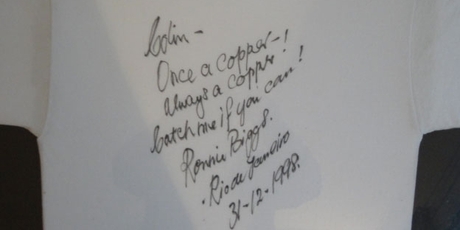 Colin -
Once a copper -!
Always a copper!
Catch me if you can!
Ronnie Biggs.
Rio de Janeiro
31-12-1998.